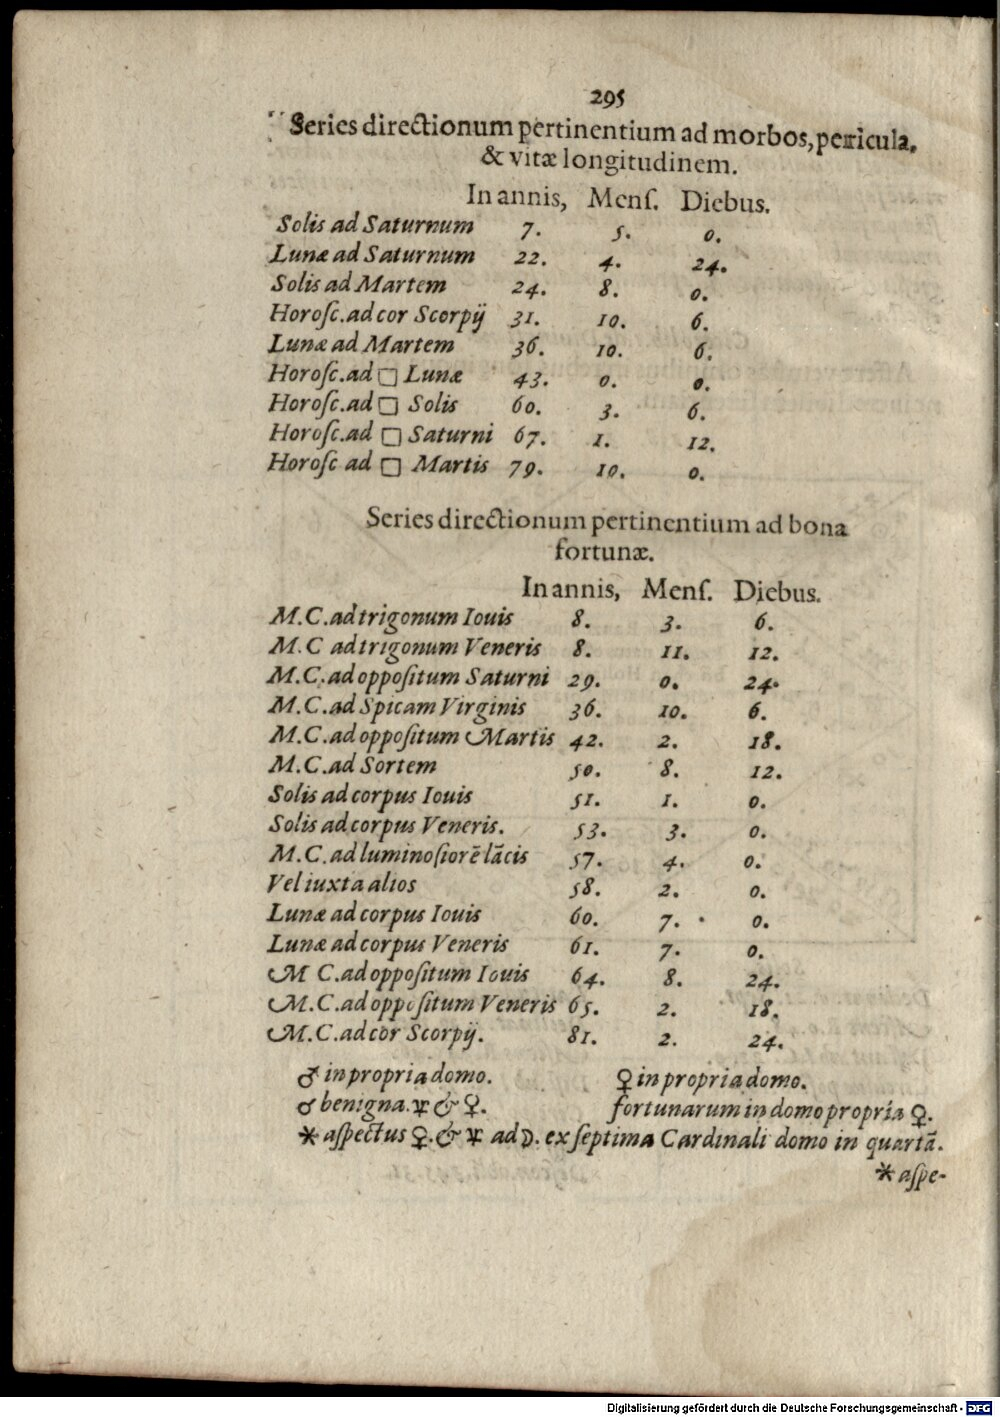 295
Series directionum pertinentium ad morbos, pericula,
& vitæ longitudinem.
In annis, Menſ. Diebus.
Solis ad Saturnum 7. 5. 0.
Lunæ ad Saturnum 22. 4. 24.
Solis ad Martem 24. 8. 0.
Horoſc. ad cor Scorpij 31. 10. 6.
Lunæ ad Martem 36. 10. 6.
Horoſc. ad □ Lunæ 43. 0. 0.
Horoſc. ad □ Solis 60. 3. 6.
Horoſc. ad □ Saturni 67. 1. 12.
Horoſc ad □ Martis 79. 10. 0.
Series directionum pertinentium ad bona
fortunæ.
In annis, Menſ. Diebus.
M.C. ad trigonum Iouis 8. 3. 6.
M.C ad trigonum Veneris 8. 11. 12.
M.C. ad oppoſitum Saturni 29. 0. 24.
M.C. ad Spicam Virginis 36. 10. 6.
M.C. ad oppoſitum Martis 42. 2. 18.
M.C. ad Sortem 50. 8. 12.
Solis ad corpus Iouis 51. 1. 0.
Solis ad corpus Veneris. 53. 3. 0.
M.C. ad luminoſiorē lācis 57. 4. 0.
Vel iuxta alios 58. 2. 0.
Lunæ ad corpus Iouis 60. 7. 0.
Lunæ ad corpus Veneris 61. 7. 0.
M C. ad oppoſitum Iouis 64. 8. 24.
M.C. ad oppoſitum Veneris 65. 2. 18.
M.C. ad cor Scorpij. 81. 2. 24.
♂ in propria domo. ♀ in propria domo.
♂ benigna. ♃ & ♀. fortunarum in domo propria ♀.
⚹ aſpectus ♀. & ♃ ad ☽. ex ſeptima Cardinali domo in quartā.
⚹ aſpe-
Digitalisierung gefördert durch die Deutsche Forschungsgemeinschaft - DFG